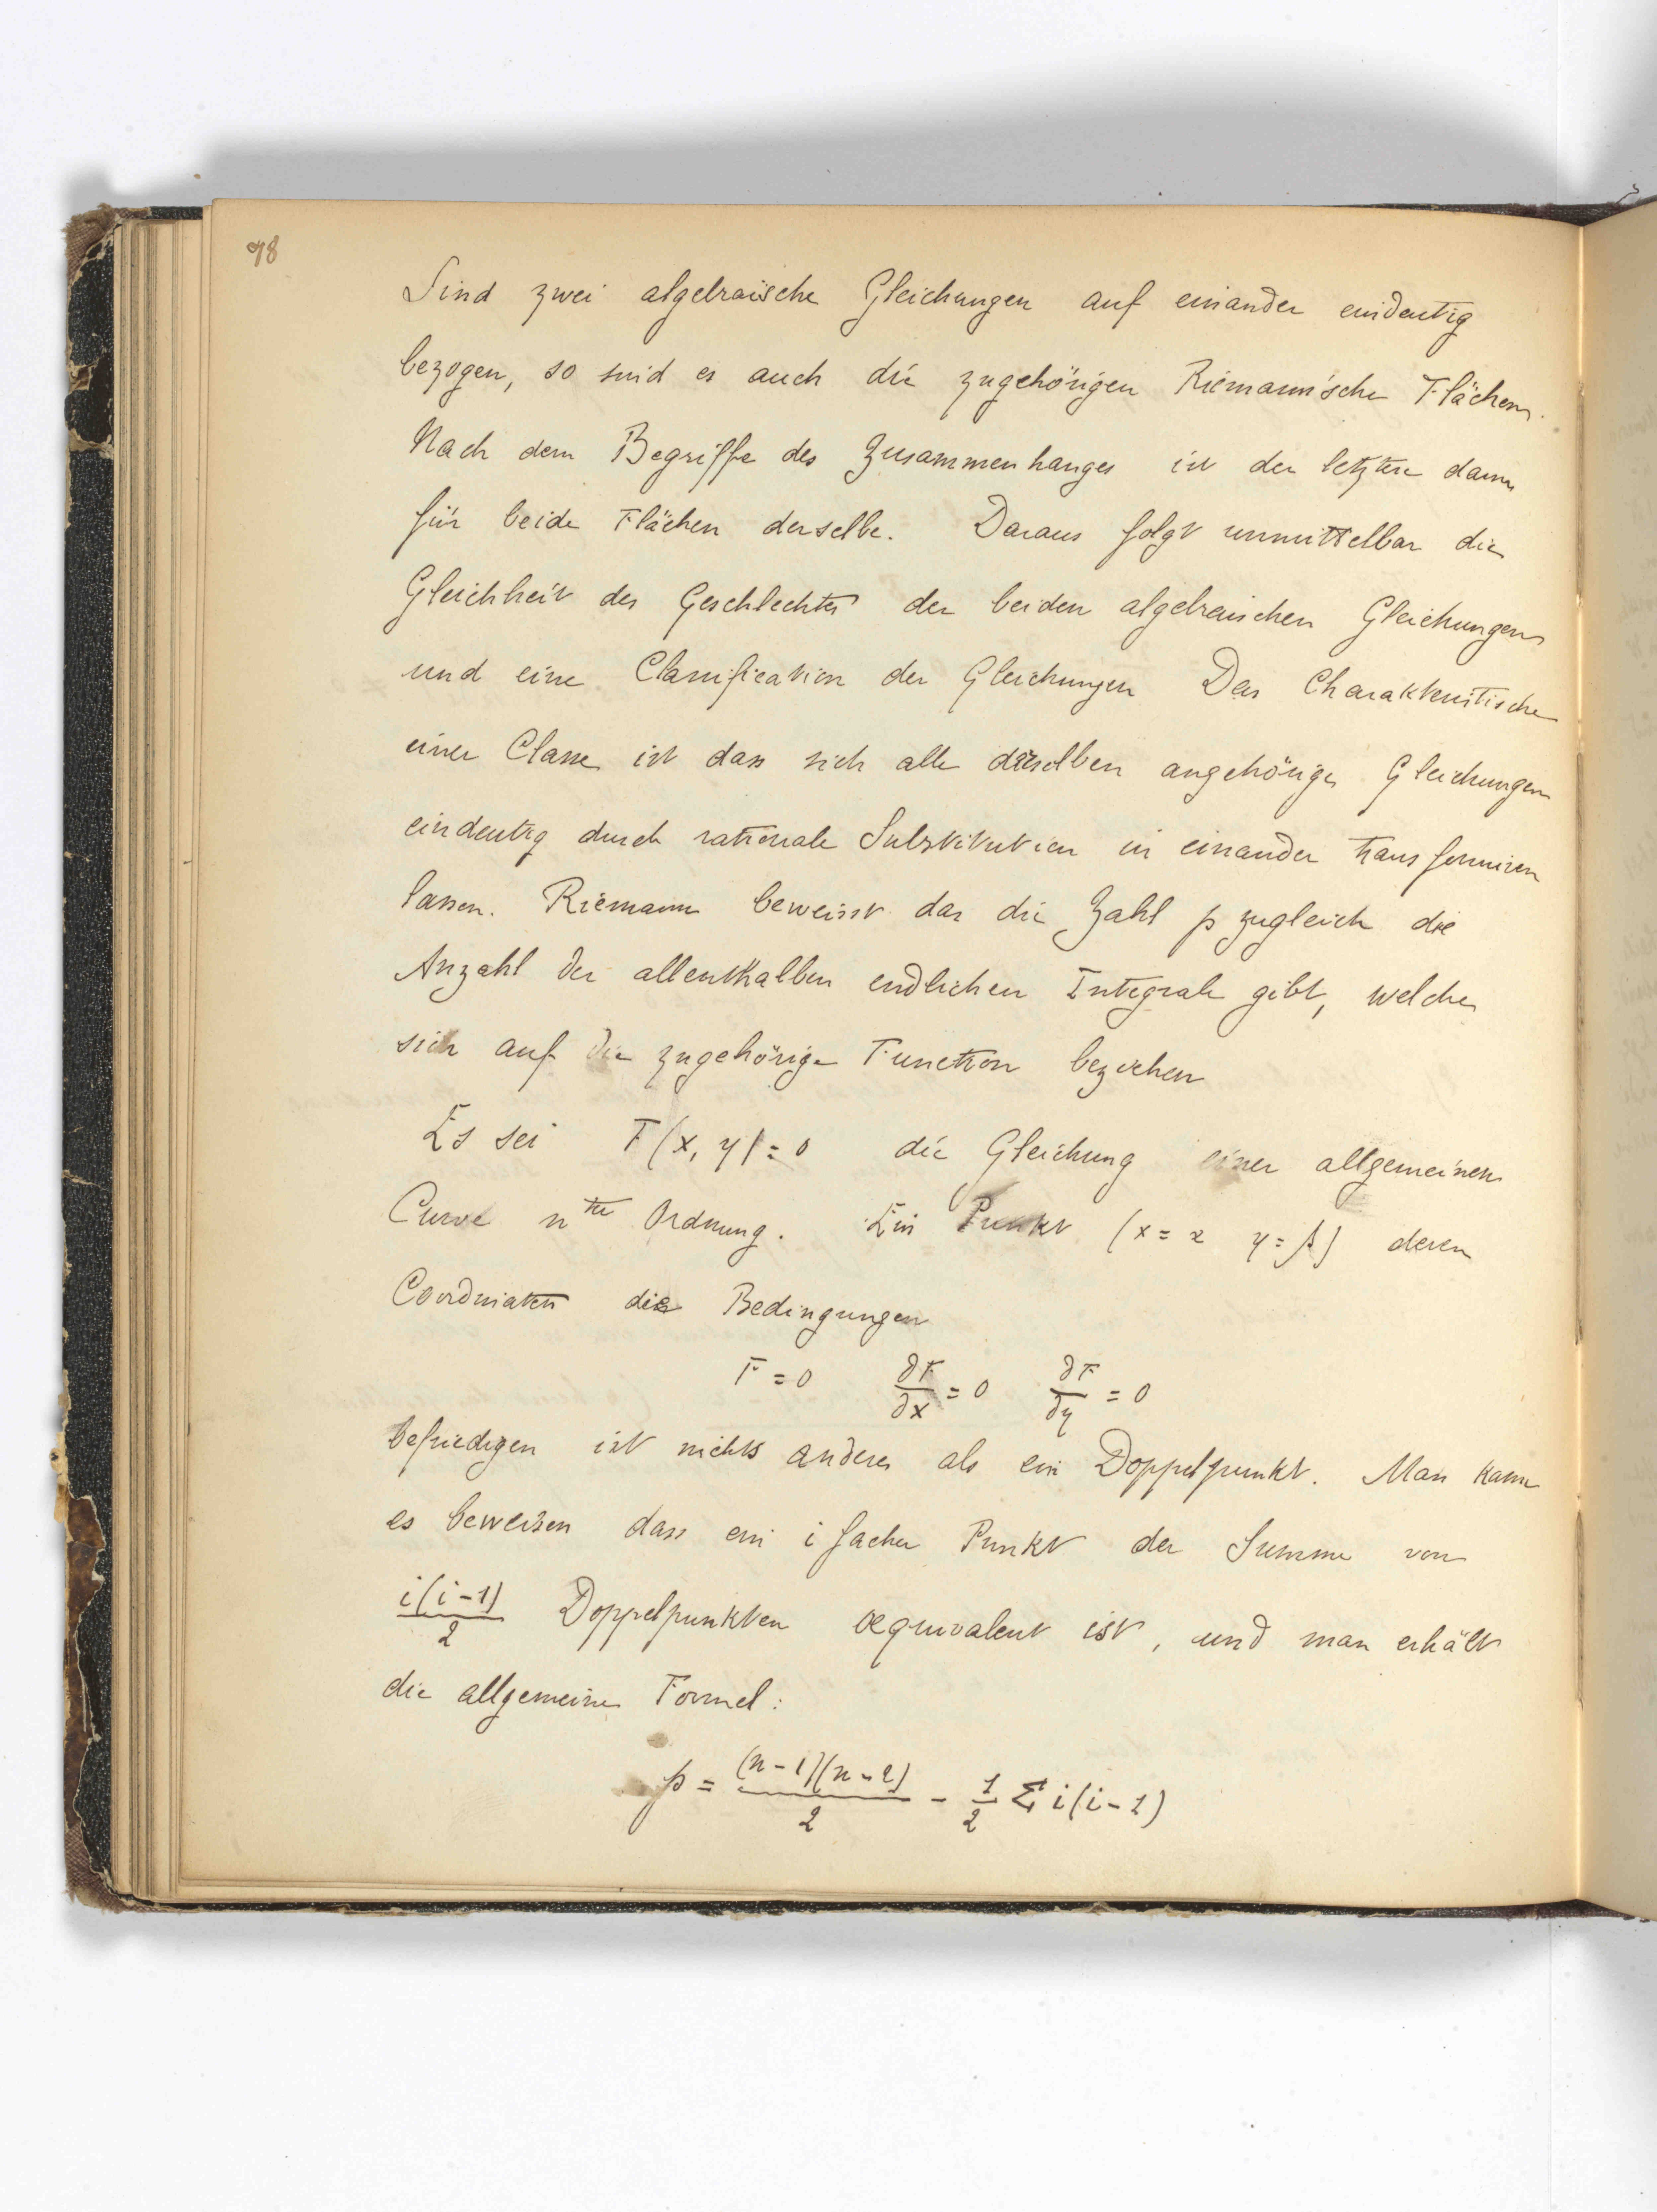 98
Sind zwei algebraische Gleichungen auf einander eindeutig
bezogen, so sind es auch die zugehörigen Riemann'sche Flächen.
Nach dem Begriffe des Zusammenhanges ist der letztere dann
für beide Flächen derselbe. Daraus folgt unmittelbar die
Gleichheit des Geschlechtes der beiden algebraischen Gleichungen
und eine Classification der Gleichungen Das Charakteristische
einer Classe ist dass sich alle derselben angehörige Gleichungen
eindeutig durch rationale Substitution in einander transformiren
lassen. Riemann beweisst das die Zahl p zugleich die
Anzahl der allenthalben endlichen Integrale gibt, welche
sich auf die zugehörige Function beziehen
Es sei F(x, y) = 0 die Gleichung einer allgemeinen
Curve n ter Ordnung. Ein Punkt (x = α y = β) deren
Coordinaten die Bedingungen
F = 0 ∂F/∂x = 0 ∂F/∂y = 0
befriedigen ist nichts anderes als ein Doppelpunkt. Man kann
es beweisen dass ein i facher Punkt der Summe von
i(i-1)/2 Doppelpunkten aequivalent ist, und man erhält
die allgemeine Formel:
p = (n-1)(n-2)/2 - 1/2 Σ i(i-1)